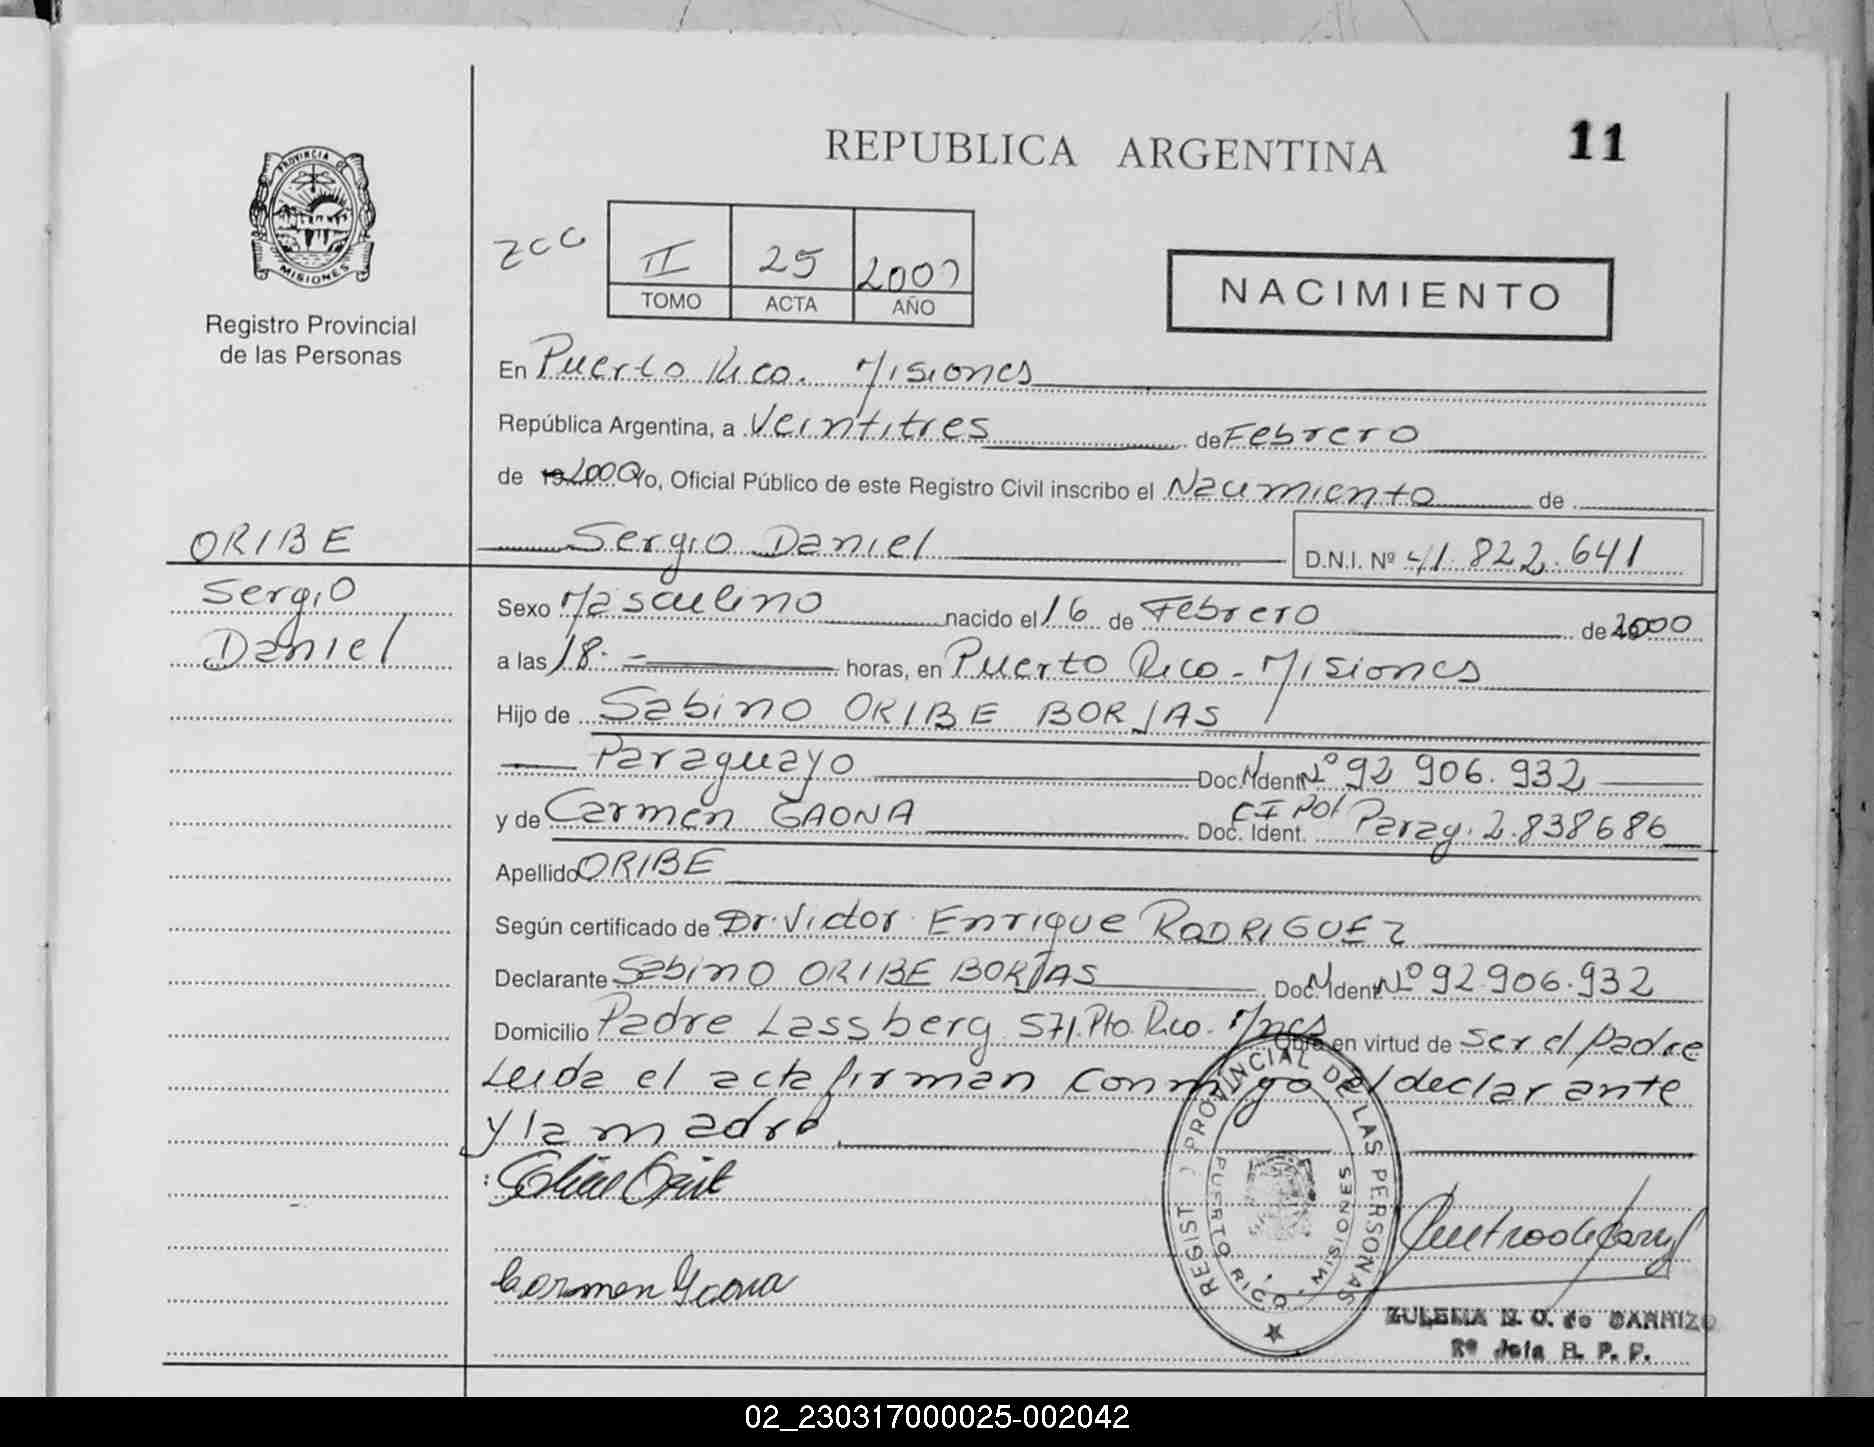 REPUBLICA ARGENTINA
11
PROVINCIA DE
MISIONES
Registro Provincial
de las Personas
II 25 2000
TOMO ACTA AÑO
NACIMIENTO
En Puerto Rico. Misiones
República Argentina, a Veintitres de Febrero
de 19 2000 Yo, Oficial Público de este Registro Civil inscribo el Nacimiento de
Sergio Daniel D.N.I. Nº 41.822.641
ORIBE
Sergio
Daniel
Sexo Masculino nacido el 16 de Febrero de 2000
a las 18.- horas, en Puerto Rico - Misiones
Hijo de Sabino ORIBE BORJAS
Paraguayo Doc. Ident. Nº 92 906.932
y de Carmen GAONA Doc. Ident. CI Pol Parag. 2.838686
Apellido ORIBE
Según certificado de Dr. Victor Enrique RODRIGUEZ
Declarante Sabino ORIBE BORJAS Doc. Ident. Nº 92.906.932
Domicilio Padre Lassberg 571. Pto. Rico. Mnes Obra en virtud de ser el padre
Leida el acta firman conmigo el declarante
y la madre.
Carmen Gaona
REGIST PROVINCIAL DE LAS PERSONAS
PUERTO RICO, MISIONES
ZULEMA N. O. de CARRIZO
2º Jefa R. P. P.
02_230317000025-002042